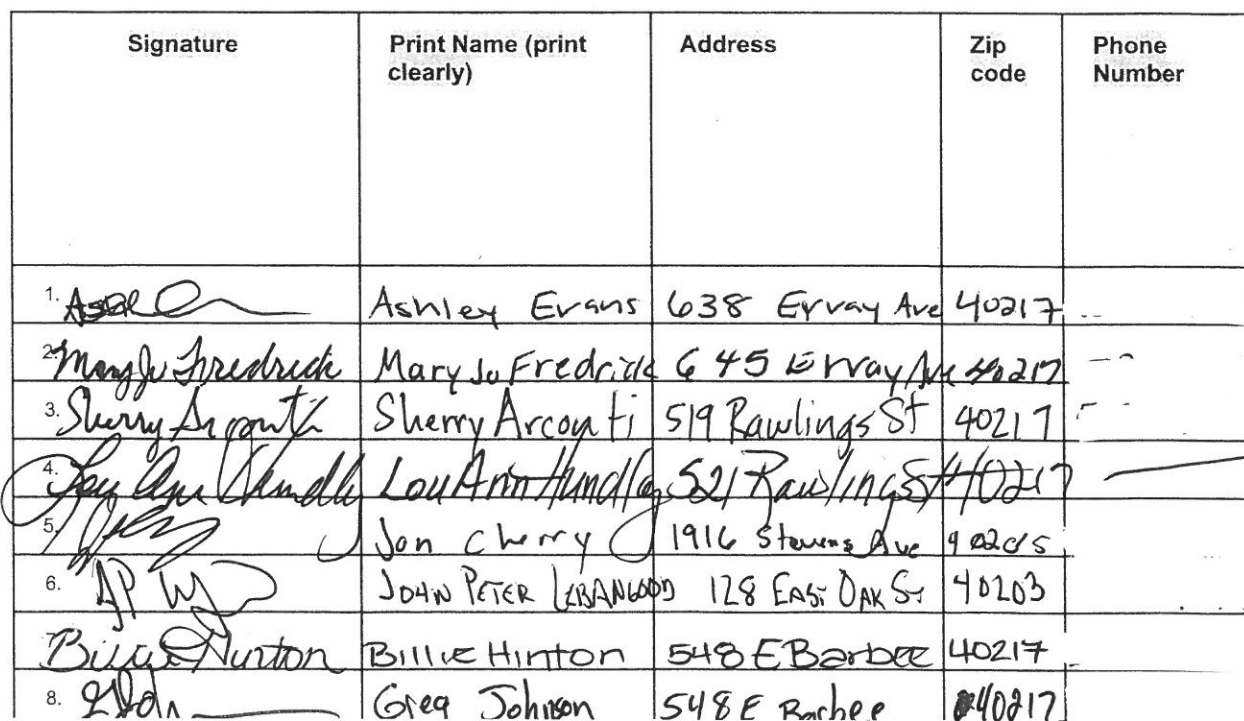 Signature Print Name (print clearly) Address Zip code Phone Number
1. Ashley Evans 638 Ervay Ave 40217
2. Mary Jo Fredrick Mary Jo Fredrick 645 Ervay Ave 40217
3. Sherry Arconti Sherry Arconti 519 Rawlings St 40217
4. Lou Ann Hundley Lou Ann Hundley 521 Rawlings St 40217
5. Jon Cherry 1916 Stevens Ave
6. JOHN PETER 128 EAST OAK ST 40203
Billie Hinton BILLIE Hinton 548 E Barbee 40217
8. Greg Johnson 548 E Barbee 40217